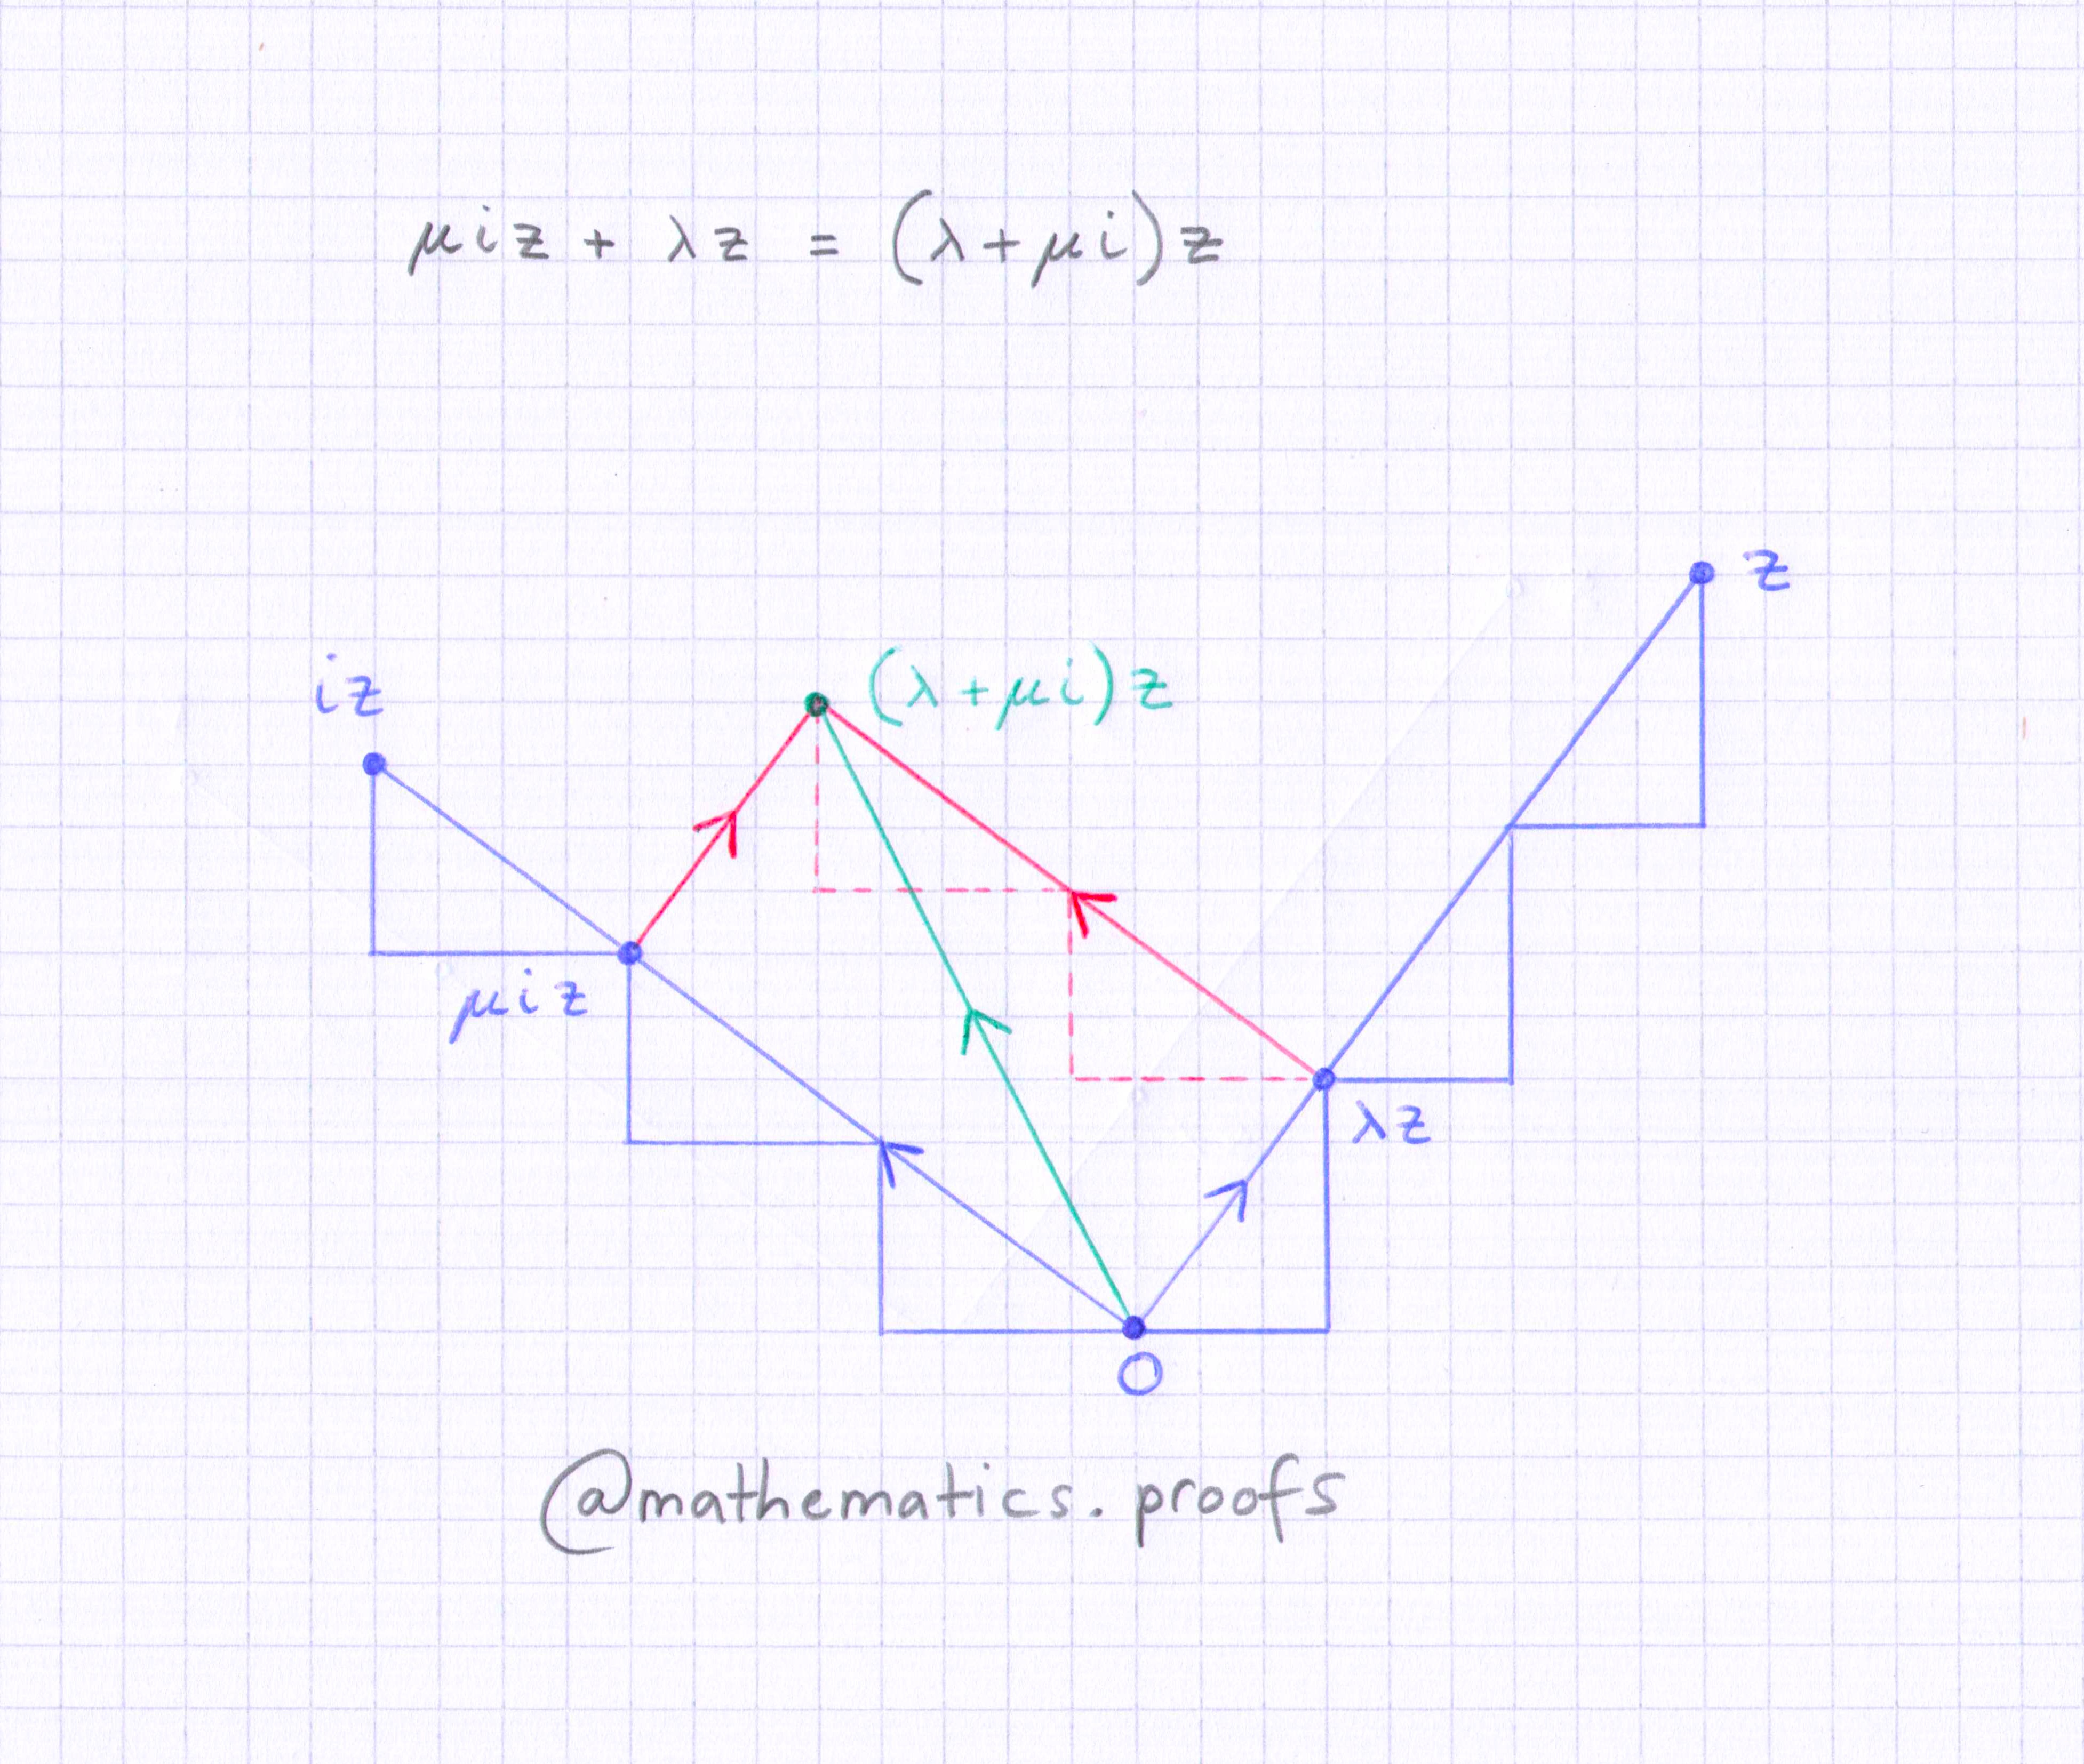 μiz + λz = (λ+μi)z
z
iz
(λ+μi)z
μiz
λz
O
@mathematics.proofs